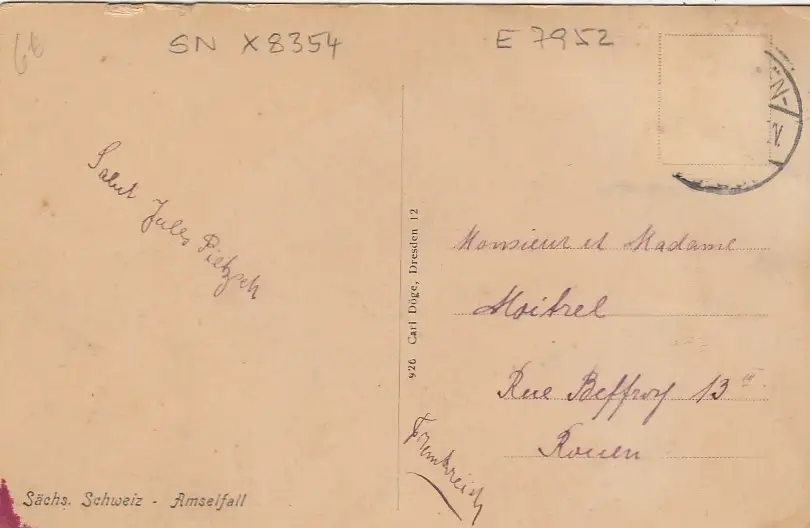 6t
SN X8354
E 7952
EN-
V.
Salut Jules Pietzsch
926 Carl Döge, Dresden 12
Monsieur et Madame
Moitrel
Rue Beffroy 13
Rouen
Frankreich
Sächs. Schweiz - Amselfall